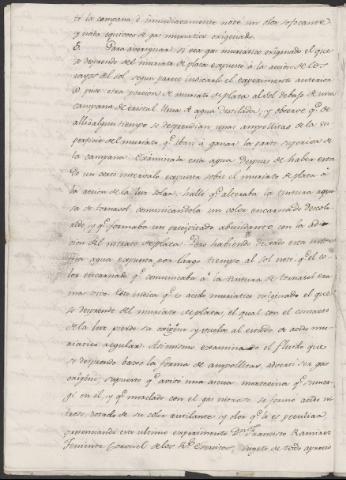 te la campana é inmediatamente note un olor sofocante
y nada equivoco de gas muriatico oxiginado.
Para averiguar si era gas muriatico oxiginado el que
se desprende del muriate de plata expuesto à la acción de los
rayos del sol, segun parece indicarlo el experimento anterior
puse otra porcion de muriate de plata al sol debaxo de una
campana de cristal llena de agua destilada, y observé qe. de
alli à algun tiempo se desprendian unas ampollitas de la su
perficie del muriate qe. iban à ganar la parte superior de
la campana. Examinada esta agua despues de haber esta
do un cierto intervalo expuesta sobre el muriate de plata à
la acción de la luz solar, hallé qe. alteraba la tintura aquo
sa de tornasol, comunicandola un color encarnado
y qe. formaba un precipitado abundante con la adi
cion del nitrate de plata. Pero habiendo dexado esta mis
ma agua expuesta por largo tiempo al sol noté qe. el co
lor encarnado qe. comunicaba à la tintura de tornasol era
mas vivo. Esto indica qe. es acido muriatico oxiginado el que
se desprende del muriate de plata, el qual con el contacto
de la luz pierde su oxigino y vuelve al estado de acido mu
riatico regular. Asimismo examinando el fluido que
se desprende baxo la forma de ampollitas, advertí ser gas
oxigino, respecto qe. avivó una
en él, y qe. mezclado con el gas nitroso se formó acido ni
troso, dotado de su color rutilante y olor qe. le es peculiar
presenciando este ultimo experimento Dn. Francisco Ramirez
Coronel de los Rs. Exercitos, sugeto de todo aprecio